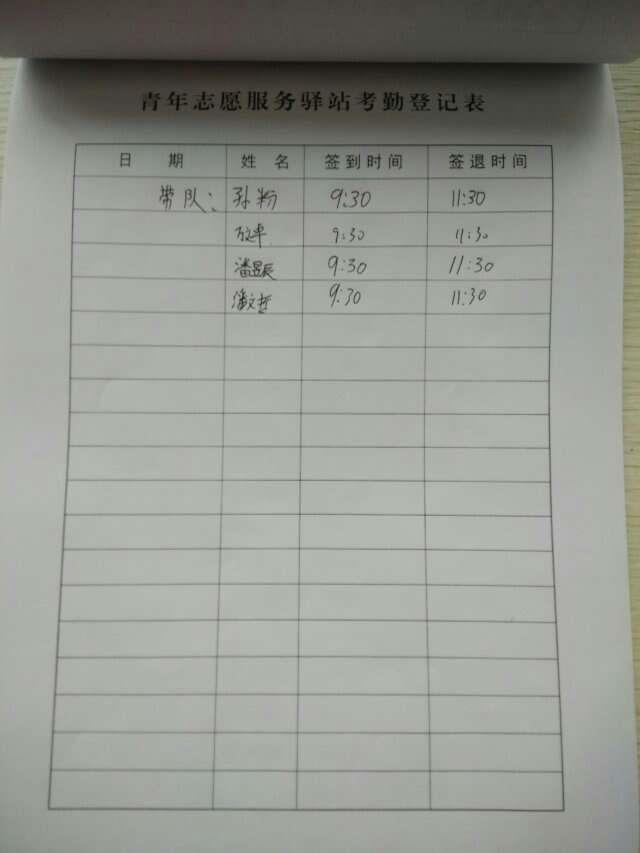 青年志愿服务驿站考勤登记表
日 期 姓 名 签到时间 签退时间
带队: 孙粉 9:30 11:30
9:30 11:30
潘昱辰 9:30 11:30
潘文哲 9:30 11:30